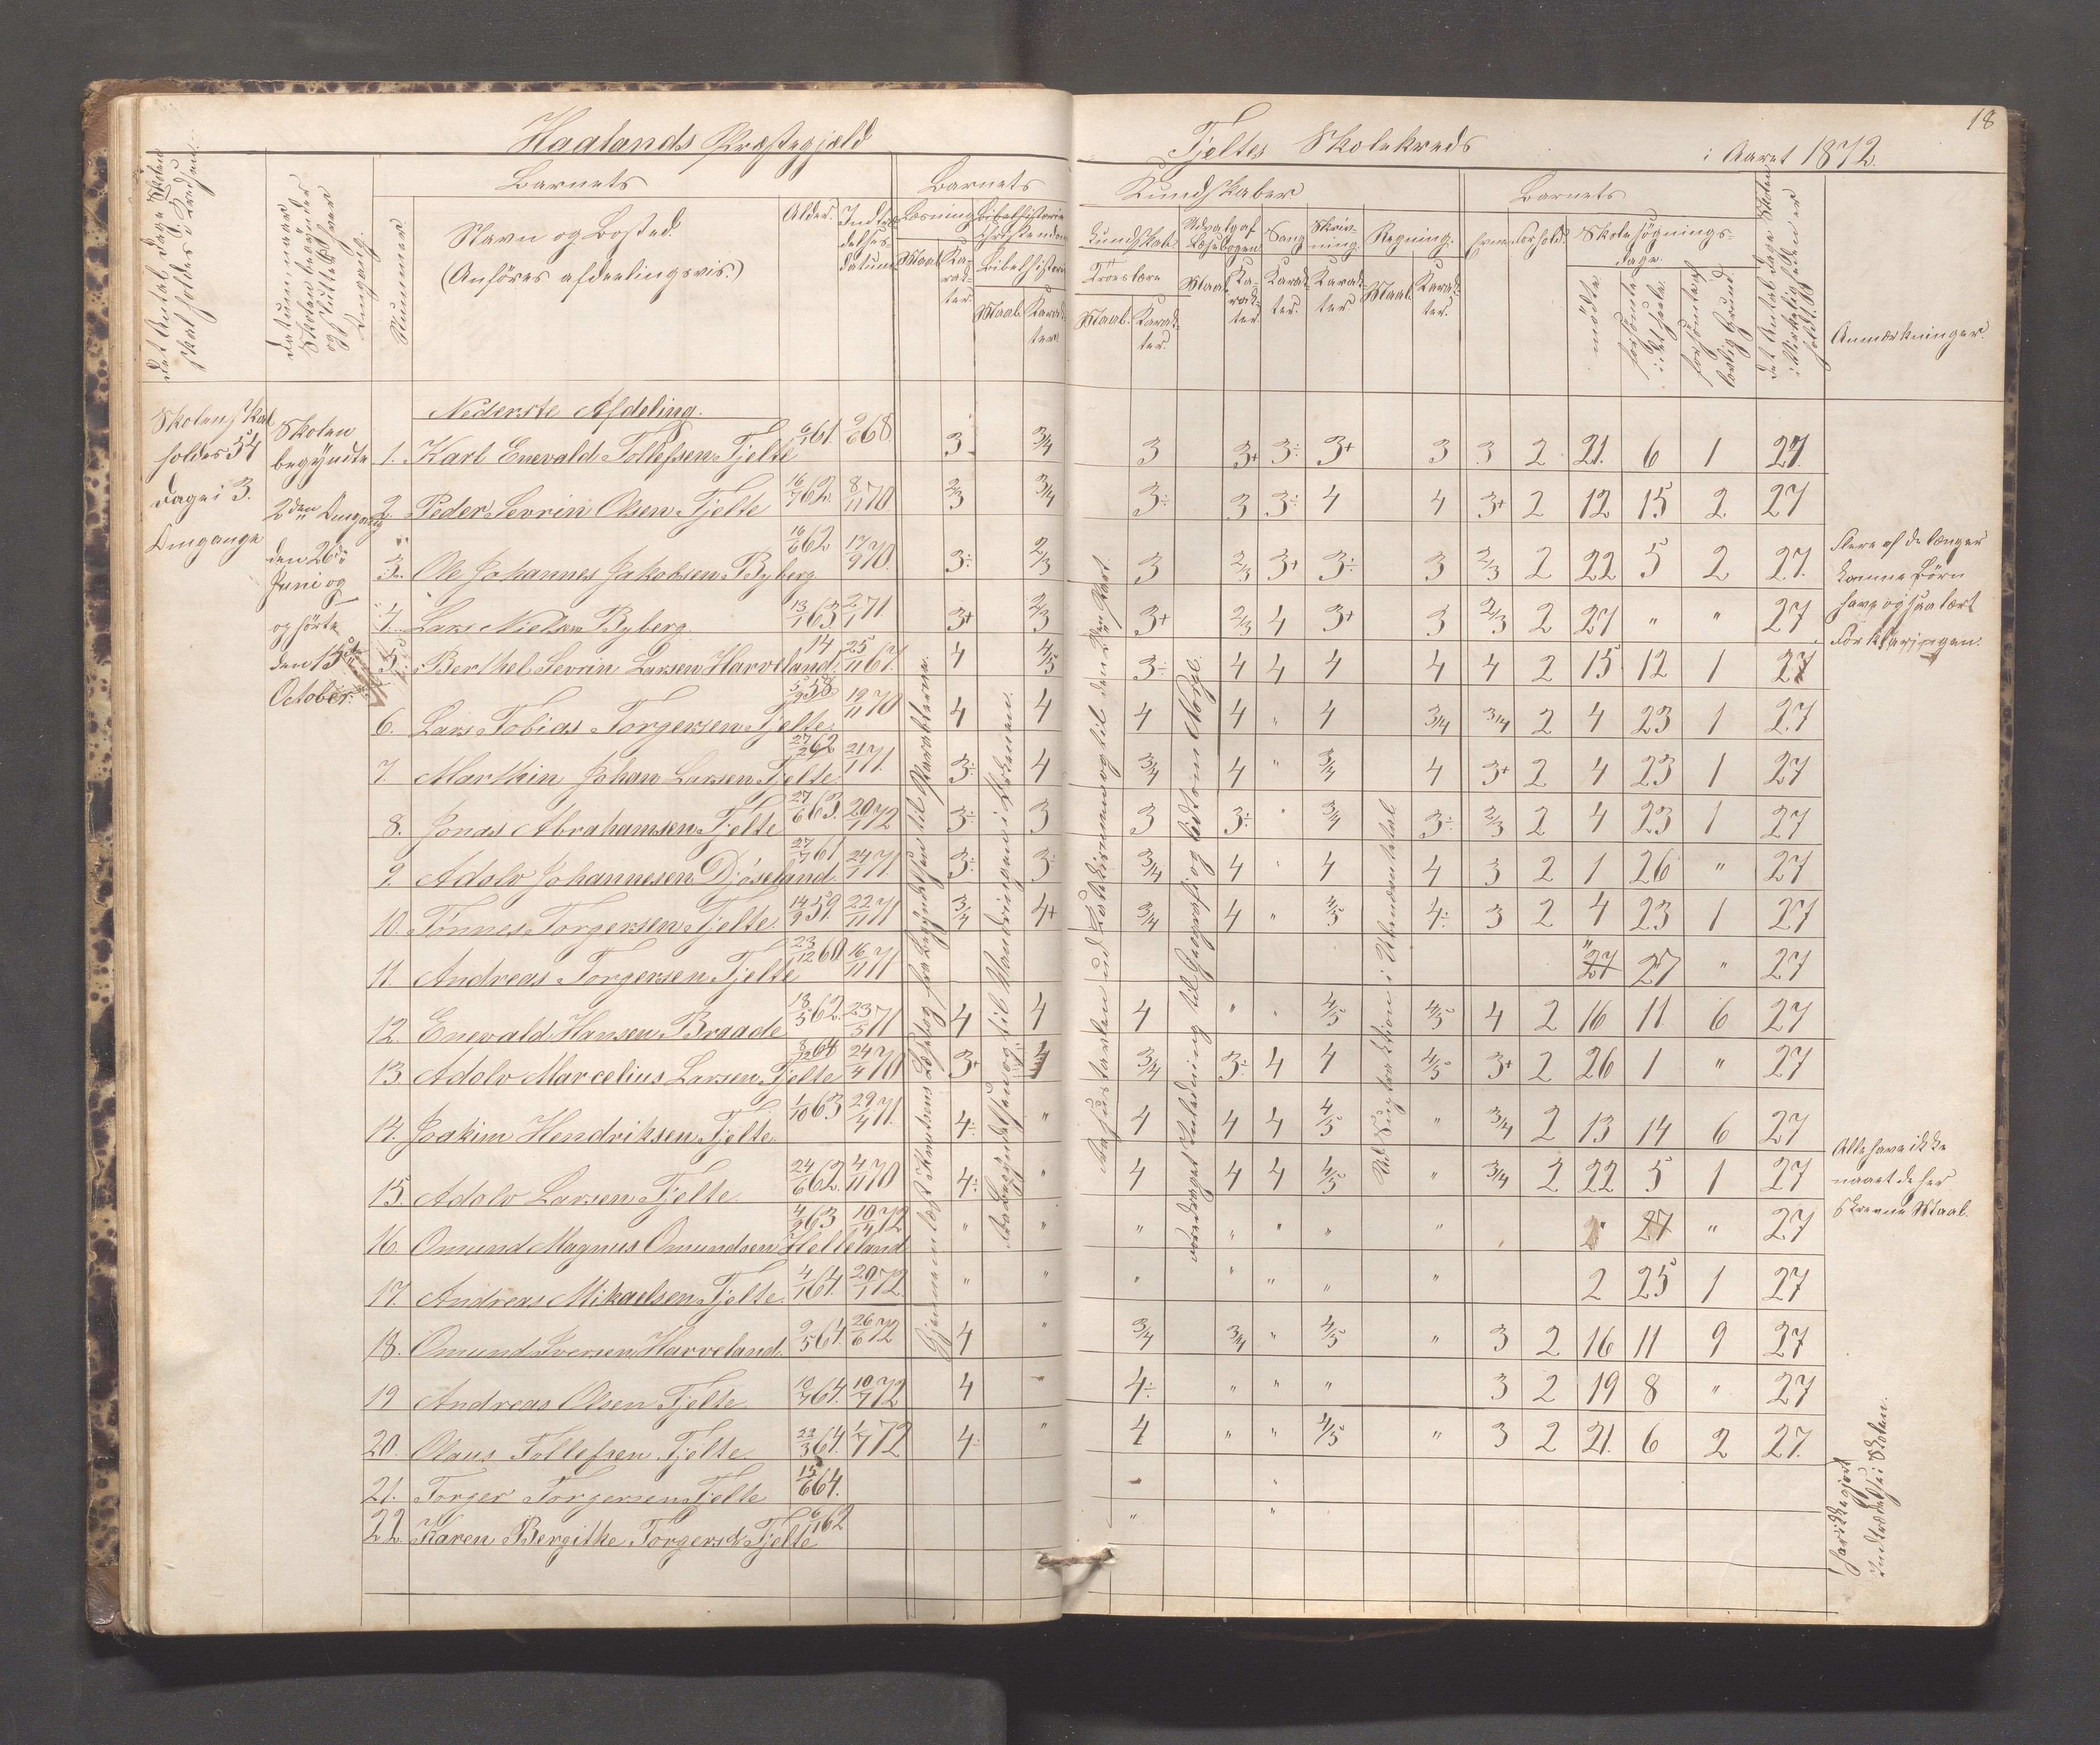 18
Haalands Præstegjæld
Tjeltes Skolekreds
i Aaret 1872.
Det Antal Dage Skolen
skal holdes i Kredsen.
Datum, naar
Skolen begynder
og slutter hver
Omgang.
Nummer
Barnets
Navn og Bosted.
(Anføres afdelingsvis.)
Alder.
Indtræ-
delses-
datum
Barnets
Læsning
Maal
Ka-
rak-
ter.
Bibelhistorie
Maal.
Karak-
ter.
Kundskaber
Kundskab
Troeslære
Maal.
Karak-
ter.
Udvalg af
Læsebogen
Maal
Ka-
rak-
ter
Sang
Karak-
ter.
Skriv-
ning.
Karak-
ter
Regning.
Maal.
Karak-
ter.
Barnets
Evne
Forhold.
Skolesøgnings-
dage.
mødte
forsømte
i det hele.
forsømte af
lovlig Grund.
Det Antal Dage Skolen
i Virkeligheden er
holdt.
Anmærkninger.
Skolen skal
holdes 54
Dage i 3.
Omgange
Skolen
begyndte
2den Omgang
den 26de
Juni og
ophørte
den 15de
October.
Nederste Afdeling.
1. Karl Enevald Tollefsen Tjelte 6/1 61. 9/6 68. 3 3/4 3 3+ 3÷ 3+ 3 3 2 21. 6 1 27.
2. Peder Sevrin Olsen Tjelte 16/7 62. 8/11 70. 2/3 3/4 3÷ 3 3÷ 4 4 3+ 2 12 15 2 27
3. Ole Johannes Jakobsen Byberg 16/6 62 19/9 70. 3÷ 2/3 3 2/3 3+ 3÷ 3 2/3 2 22 5 2 27.
4. Lars Nielsen Byberg 13/1 63 2/1 71 3+ 2/3 3+ 2/3 4 3+ 3 2/3 2 27 " " 27
5. Berthel Sevrin Larsen Harveland 25/11 67. 4 4/5 3÷ 4 4 4 4 4 2 15 12 1 27
6. Lars Tobias Torgersen Tjelte 5/9 58 19/11 70 4 4 4 4 " 4 3/4 3/4 2 4 23 1 27
7. Marthin Johan Larsen Tjelte 27/2 62 21/1 71. 3÷ 4 3/4 4 " 3/4 4 3+ 2 4 23 1 27
8. Jonas Abrahamsen Tjelte 27/6 63. 20/1 72 3÷ 3 3 3÷ " 3/4 3÷ 2/3 2 4 23 1 27
9. Adolv Johannesen Djøseland. 27/7 61 24/1 71. 3÷ 3÷ 3/4 4 " 4 4 3 2 1 26 " 27
10. Tønnes Torgersen Tjelte 14/9 59. 22/11 71 3/4 4+ 3/4 4 " 4/5 4÷ 3 2 4 23 1 27
11. Andreas Torgersen Tjelte 23/12 60 16/11 71 " 27 27 " 27
12. Enevald Hansen Braade 18/5 62. 23/5 71 4 4 4 " " 4/5 4/5 4 2 16 11 6 27
13 Adolv Marcelius Larsen Tjelte 8/12 64 24/4 70 3+ 4 3/4 3÷ 4 4 4/5 3+ 2 26 1 " 27
14. Joakim Hendriksen Tjelte 1/10 63 29/4 71. 4÷ " 4 4 4 4/5 " 3/4 2 13 14 6 27
15. Adolv Larsen Tjelte 24/6 62. 4/11 70 4÷ " 4 4 4 4/5 " 3/4 2 22 5 1 27
16. Omund Magnus Omundsen Helleland 4/9 63 72 " " " " " " " " 27 " 27
17. Andreas Mikaelsen Tjelte 4/1 64. 20/1 72 " " " " " " " 2 25 1 27
18. Omund Iversen Harveland. 9/5 64. 26/6 72 4 " 3/4 3/4 " 4/5 " 3 2 16 11 9 27
19 Andreas Olsen Tjelte 10/7 64. 10/7 72 4 " 4÷ " " " 3 2 19 8 " 27
20. Olaus Tollefsen Tjelte 22/3 64. 1/7 72 4÷ " 4 " " 4/5 " 3 2 21. 6 2 27.
21. Torger Torgersen Tjelte 15/6 64. " "
22. Karen Bergithe Torgersd. Tjelte 62 " "
Flere af de længer
komne Børn
have ogsaa lært
Forklaringen.
Alle have ikke
naaet de her
skrevne Maal.
har ikke gjort
Indtrædelse i Skolen.